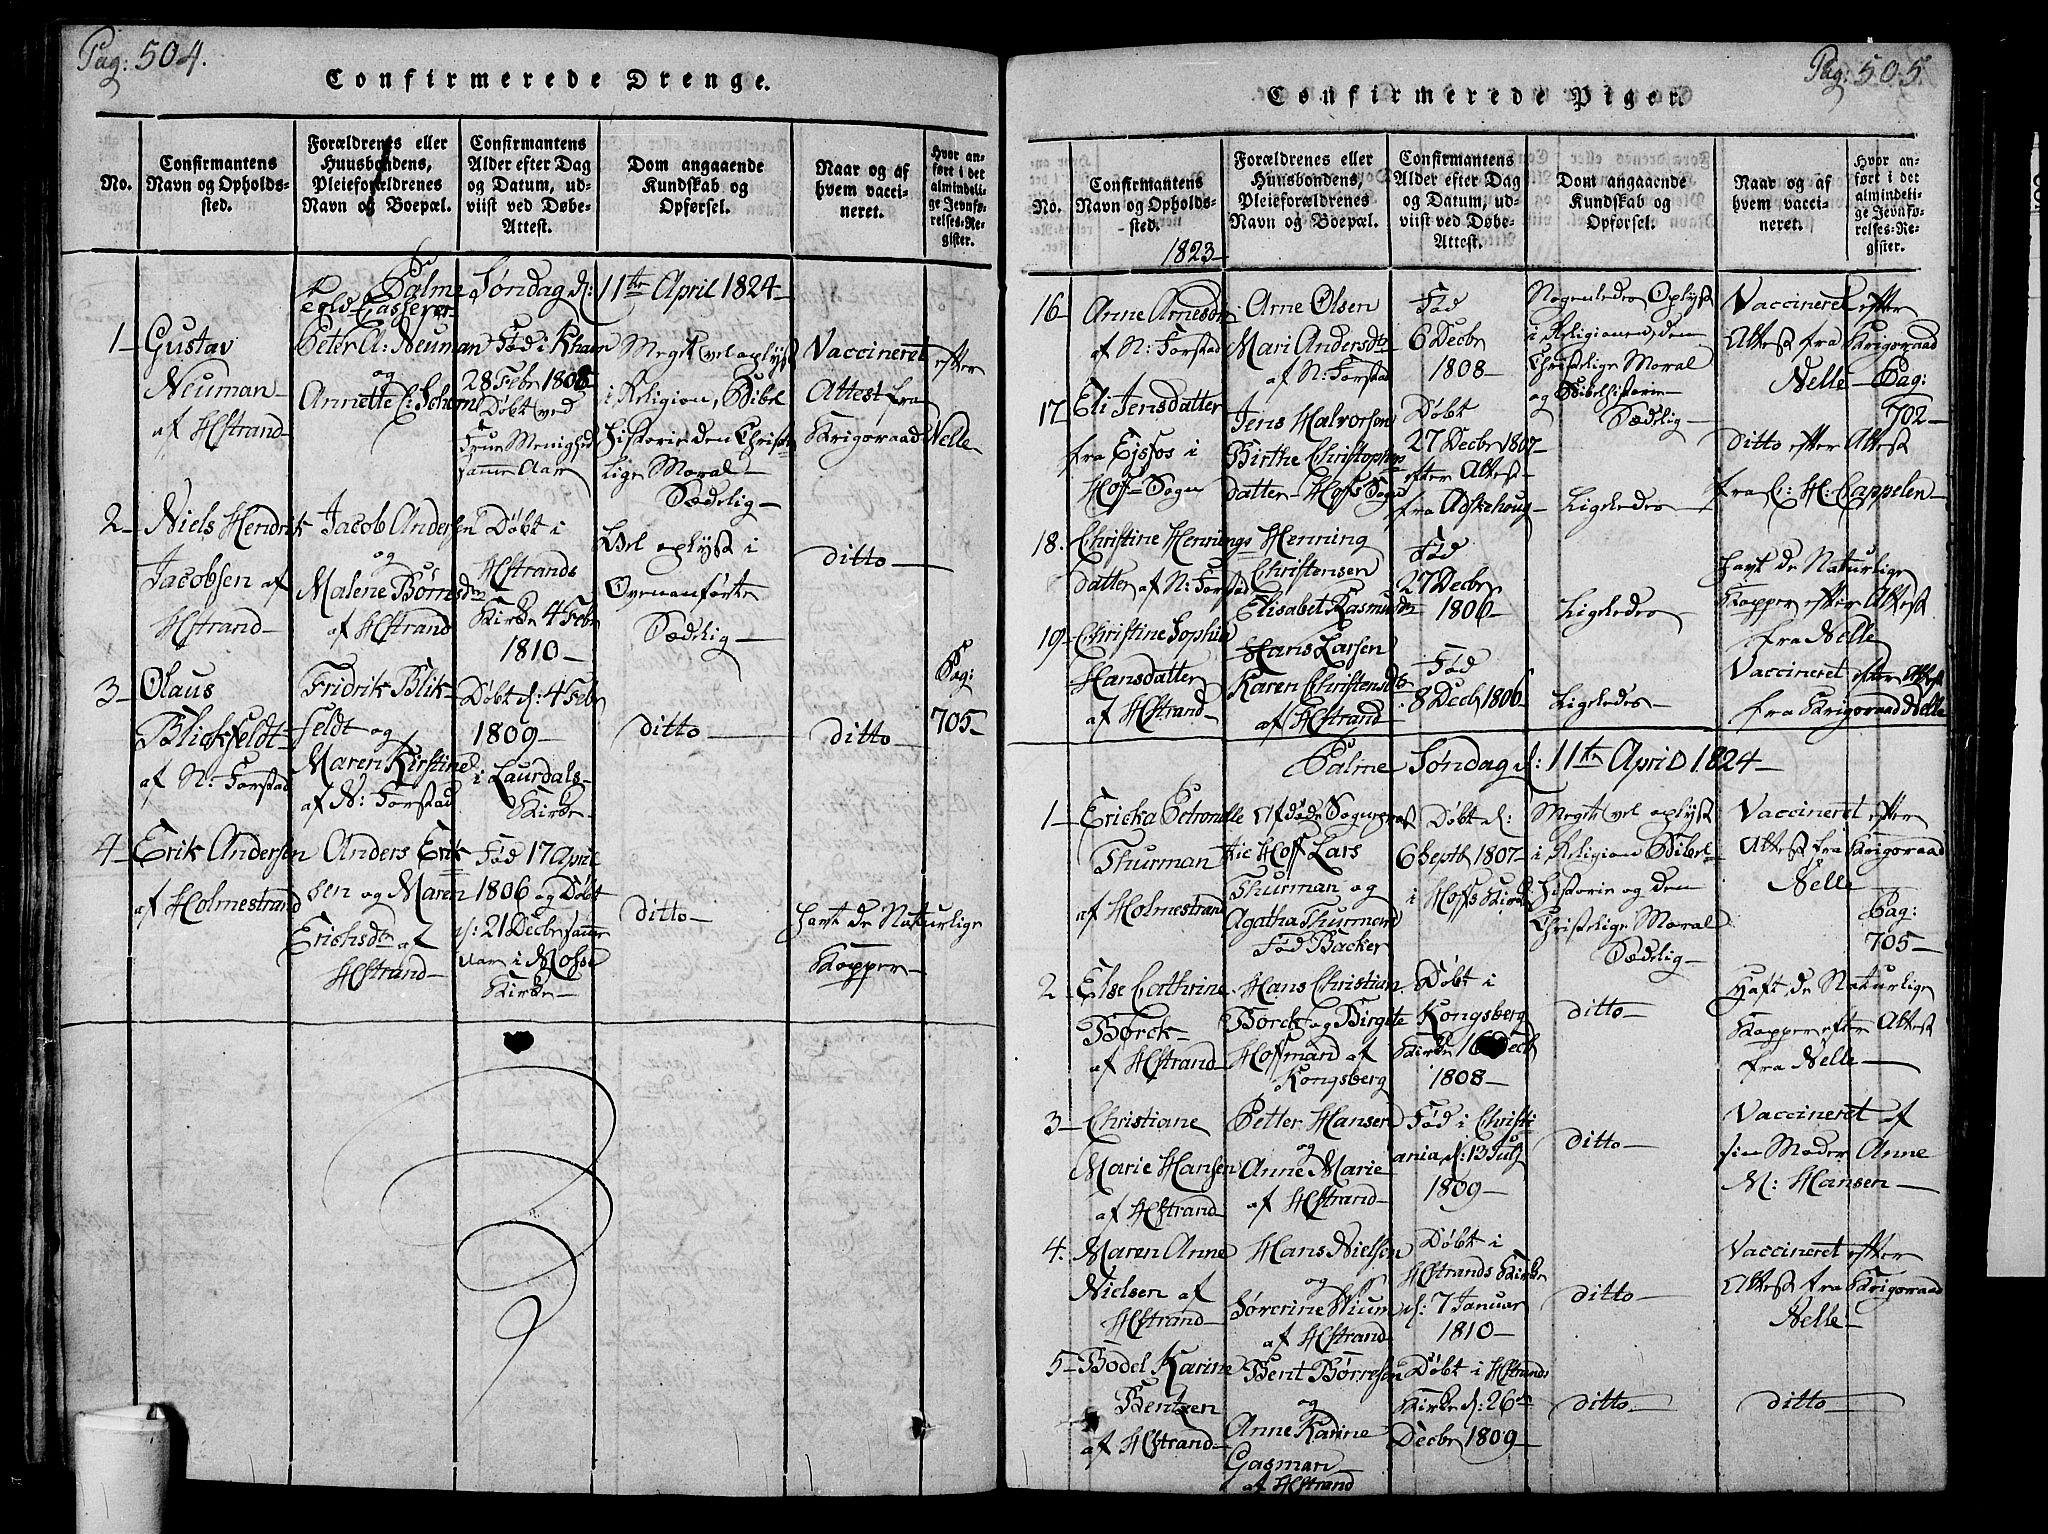 Pag: 504.
Confirmerede Drenge.
No.
Confirmantens Navn og Opholds-sted.
Forældrenes eller Huusbondens, Pleieforældrenes Navn og Boepæl.
Confirmantens Alder efter Dag og Datum, ud-viist ved Døbe-Attest.
Dom angaaende Kundskab og Opførsel.
Naar og af hvem vacci-neret.
Hvor an-ført i det almindeli-ge Jevnfø-relses-Re-gister.
Palme Søndag d: 11te April 1824
1
Gustav
Neuman
af HStrand
Peter A: Neuman
og
Annette C: Schou
Fød i Khavn
28 Febr 1808
Døbt ved
Frue Menighed
samme Aar
Meget vel oplyst
i Religion, Bibel
Historie den Christe
lige Moral
Sædelig
Vaccineret efter
Attest fra
Krigsraad Nelle
2
Niels Hendrik
Jacobsen af
HStrand
Jacob Andersen
og
Malene Børnsdtr
af HStrand
Døbt i
HStrands
Kirke 4 Febr
1810
Vel oplyst i
Ovenanførte
Sædelig
ditto
3
Olaus
Blickfeldt
af N: Forstad
Fridrik Blik-
feldt og
Maren Kirstine
af N: Forstad
Døbt d: 4 Febr
1809
i Laurdals-
Kirke
ditto
ditto
Pag:
705
4
Erik Andersen
af Holmestrand
Anders Erik
sen og Maren
Erichsdtr af
HStrand
Fød 17 April
1806 og Døbt
d: 21 Decbr samme
Aar i Mosse
Kirke
ditto
Havt de Naturlige
Kopper
Pag: 505
Confirmerede Piger.
No.
Confirmantens Navn og Opholds-sted.
Forældrenes eller Huusbondens, Pleieforældrenes Navn og Boepæl.
Confirmantens Alder efter Dag og Datum, ud-viist ved Døbe-Attest.
Dom angaaende Kundskab og Opførsel.
Naar og af hvem vacci-neret.
Hvor an-ført i det almindeli-ge Jevnfø-relses-Re-gister.
1823
16
Anne Arnesdtr
af N: Forstad
Arne Olsen
Mari Andersdtr
af N: Forstad
Fød
6 Decbr
1808
Nogenledes Oplyst
i Religionen, den
Christelige Moral
og Bibelhistorie
Sædelig
Vaccineret efter
Attest fra Krigsraad
Nelle
Pag:
702
17
Eli Jensdatter
fra Ejsfos i
Hoff Sogn
Jens Halvorsen
Birthe Christophers
datter Hofs Sogn
Døbt
27 Decbr 1807
efter Attest
fra Adskehoug
Ligeledes
ditto efter Attest
fra C: H: Cappelen
18.
Christine Hennings
datter af N: Forstad
Henning
Christensen
Elisabet Rasmusdtr
Fød
27 Decbr
1806
Ligeledes
Havt de Naturlige
Kopper efter Attest
fra Nelle
19
Christine Sophie
Hansdatter
af HStrand
Hans Larsen
Karen Christensdtr
af HStrand
Fød
8 Decbr 1806
Ligeledes
Vaccineret efter Attest
fra Krigsraad Nelle
Palme Søndag d: 11te April 1824
1
Ericka Petronelle
Thurman
af Holmestrand
Afdøde Sognepræst
til Hoff Lars
Thurman og
Agatha Thurmand
Fød Backer
Døbt d:
6 Septb 1807
i Hoffs Kirke
Meget vel oplyst
i Religion Bibel
Historie og den
Christelige Moral
Sædelig
Vaccineret efter
Attest fra Krigsraad
Nelle
Pag:
705
2
Else Cathrine
Børck
af HStrand
Hans Christian
Børck og Birgete
Hoffmand af
Kongsberg
Døbt i
Kongsberg
Kirke 16 Decb
1808
ditto
Haft de Naturlige
Kopper efter Attest
fra Nelle
3
Christiane
Marie Hansen
af HStrand
Petter Hansen
og
Anne Marie
af HStrand
Fød i Christi
ania d: 13 July
1809
ditto
Vaccineret af
sin Moder Anne
M: Hansen
4.
Maren Anne
Nielsen af
HStrand
Hans Nielsen
og
Sørerine Wium
af HStrand
Døbt i
HStrands Kirke
d: 7 Januar
1810
ditto
Vaccineret efter
Attest fra Krigsraad
Nelle
5
Bodel Karine
Bentzen
af HStrand
Bent Børresen
og
Anne Karine
Gasman
af HStrand
Døbt i HStrands
Kirke d: 26de
Decbr 1809
ditto
ditto